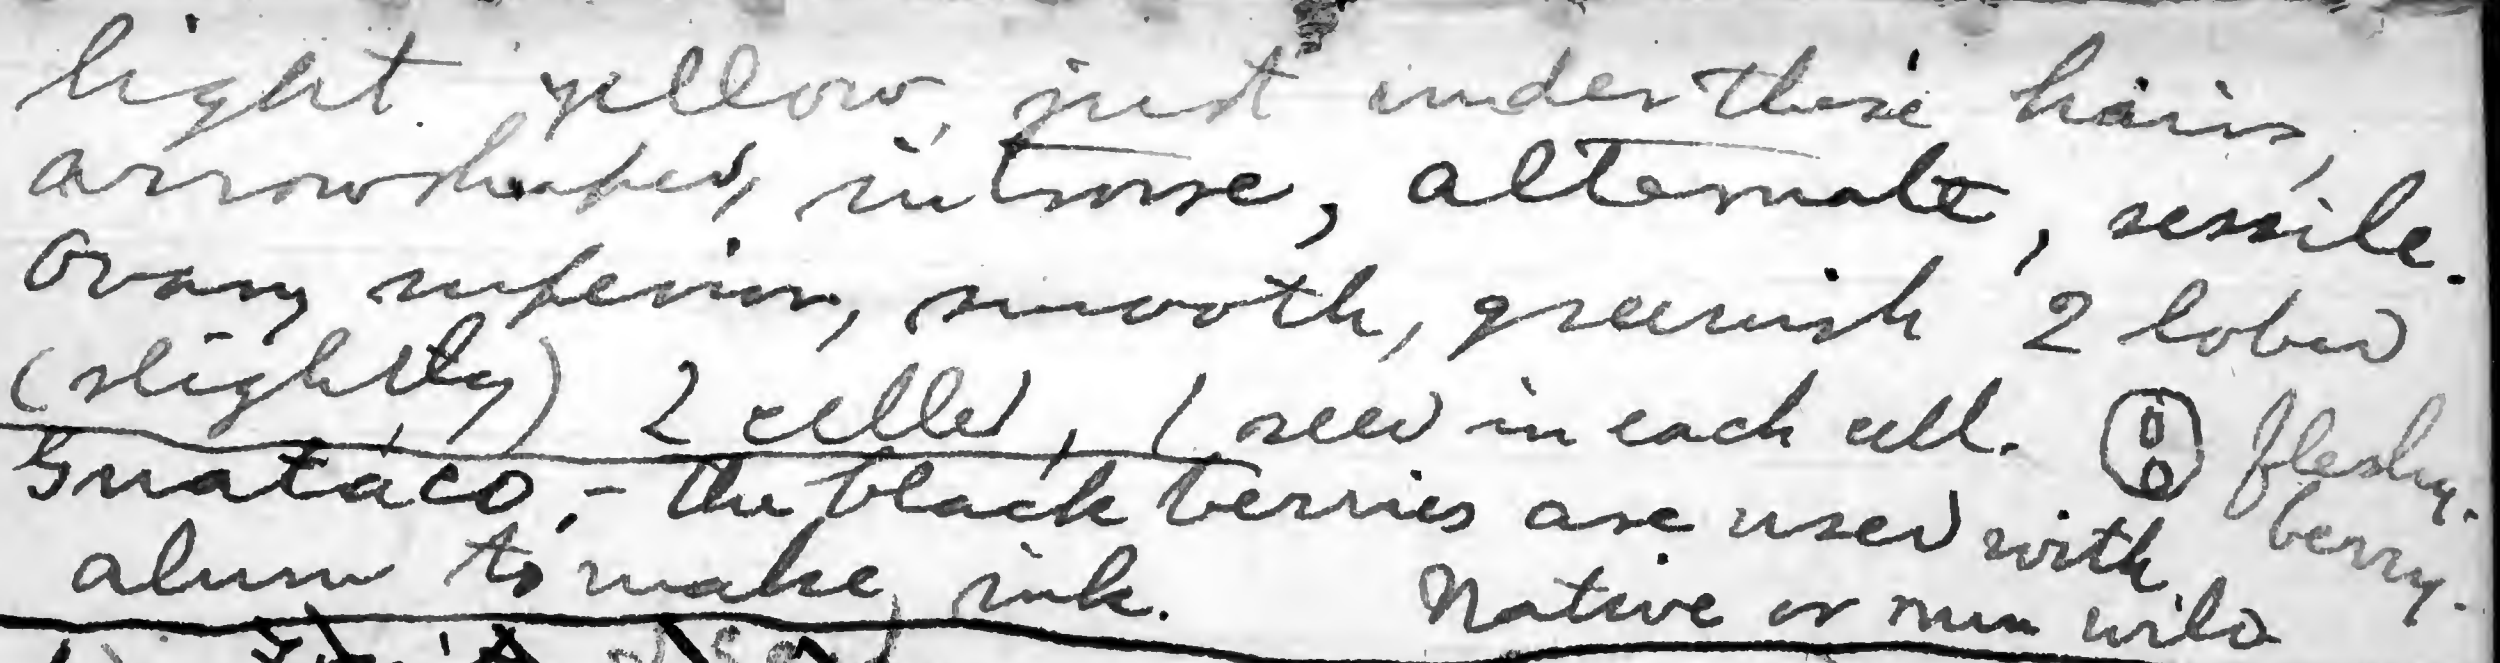 light yellow, just under these hairs,
arrowshaped, introrse, alternate, sessile.
Ovary superior, smooth, greenish 2 lobed
(slightly) 2 celled, 1 seed in each cell. fleshy.
berry.
Guataco, - The black berries are used with
alum to make ink. Native or run wild